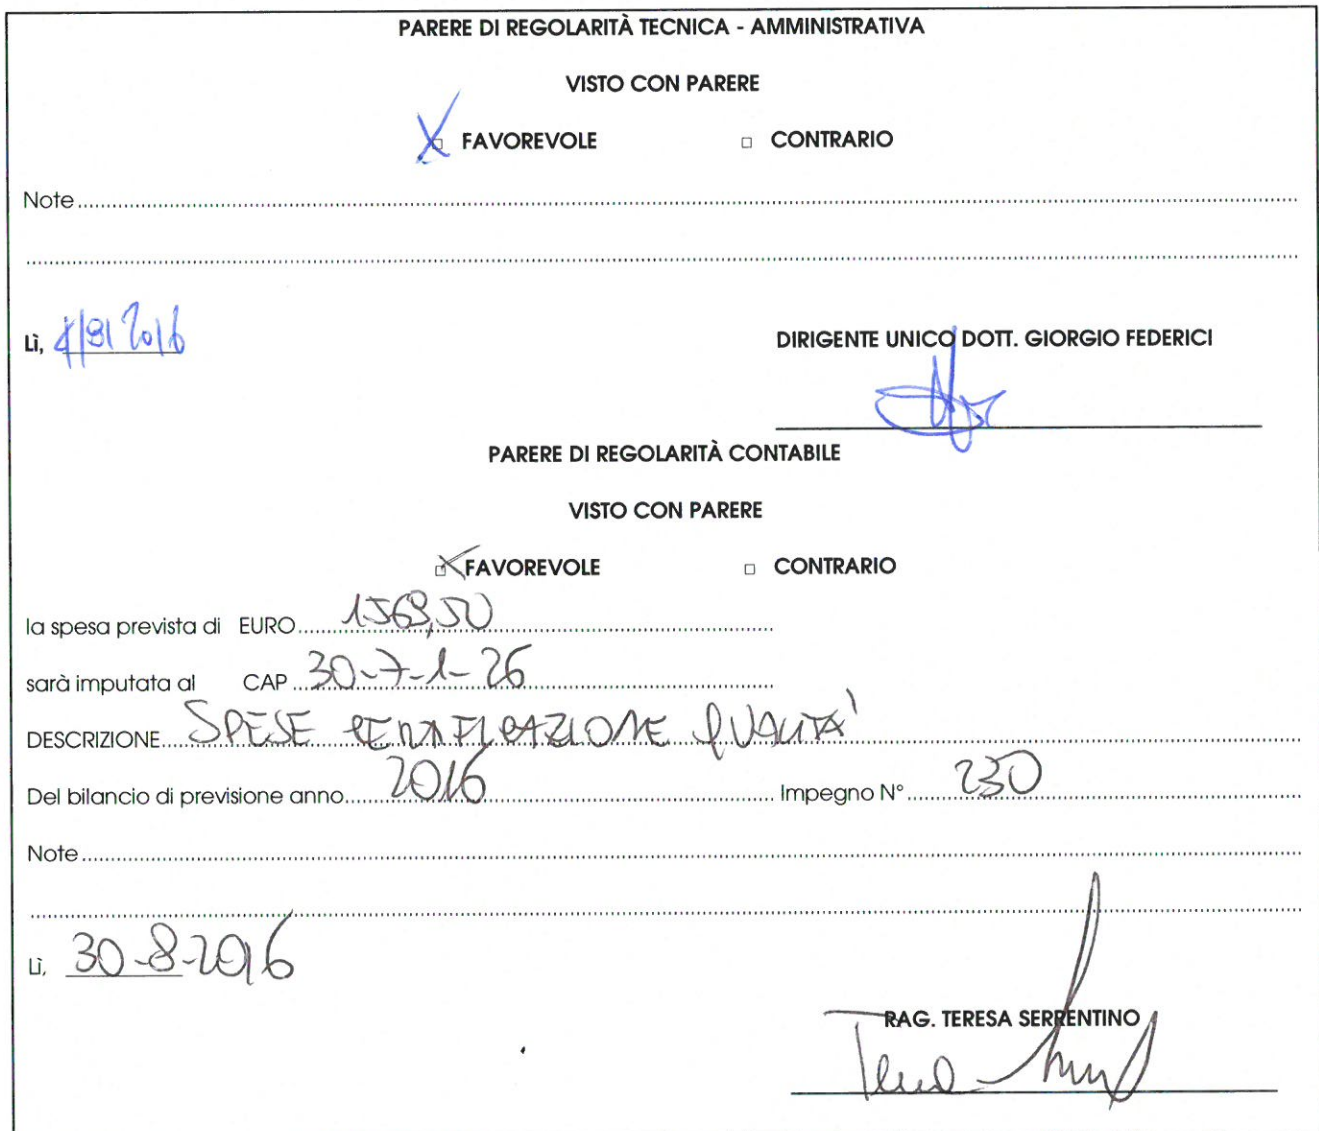 PARERE DI REGOLARITÀ TECNICA - AMMINISTRATIVA
VISTO CON PARERE
FAVOREVOLE CONTRARIO
Note
Lì, 2016
DIRIGENTE UNICO DOTT. GIORGIO FEDERICI
PARERE DI REGOLARITÀ CONTABILE
VISTO CON PARERE
FAVOREVOLE CONTRARIO
la spesa prevista di EURO
sarà imputata al CAP 30-7-1-26
DESCRIZIONE SPESE CERTIFICAZIONE QUALITA'
Del bilancio di previsione anno 2016 Impegno N° 230
Note
Lì, 30-8-2016
RAG. TERESA SERRENTINO